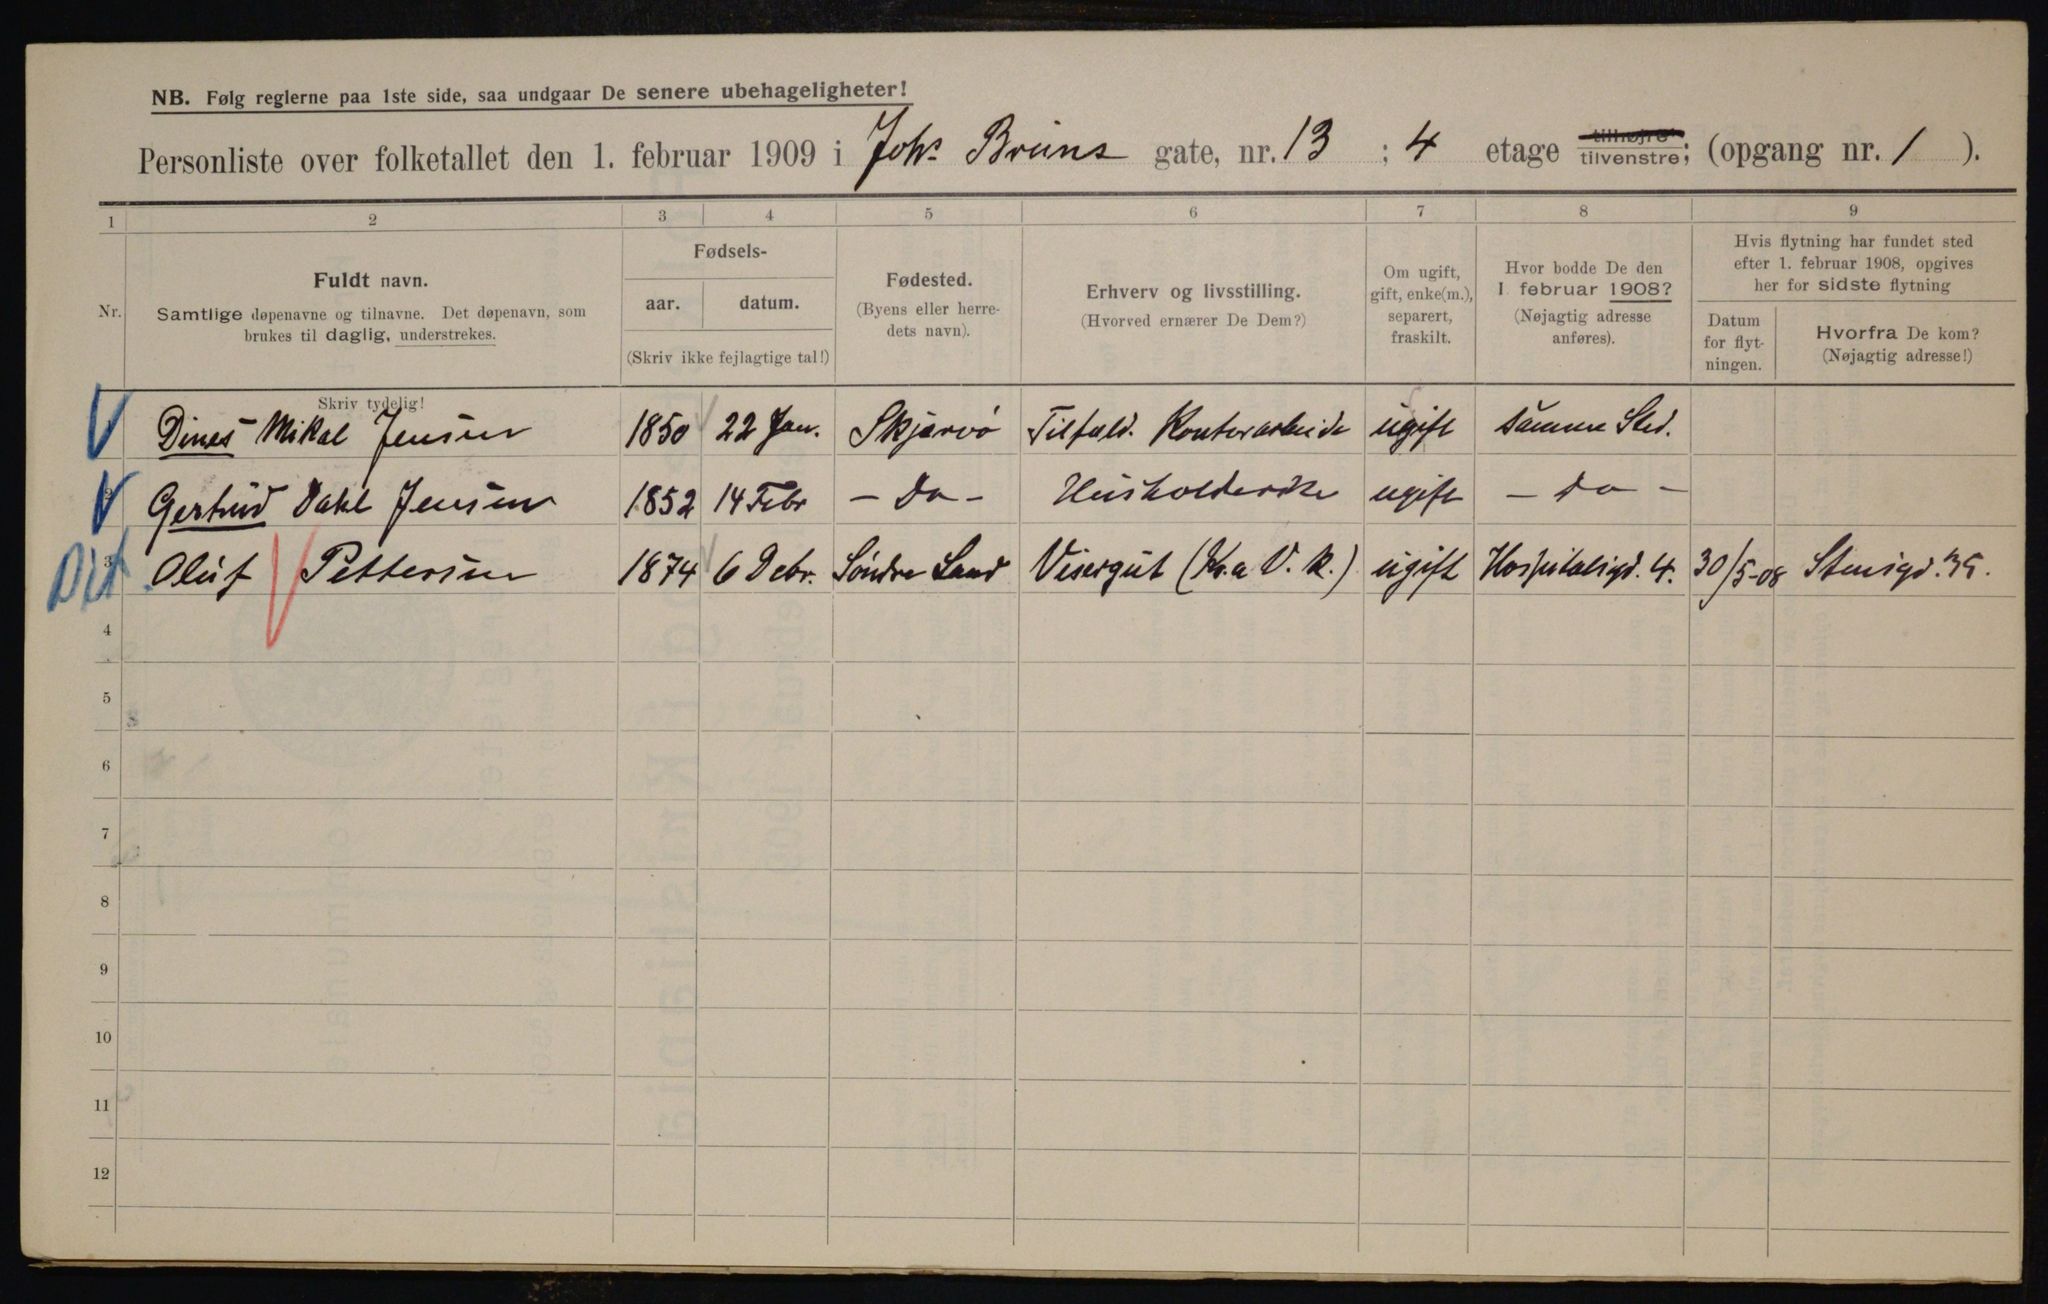 NB. Følg reglerne paa 1ste side, saa undgaar De senere ubehageligheter!
Personliste over folketallet den 1. februar 1909 i Johs Bruns gate, nr. 13 ; 4 etage tilhøjre tilvenstre; (opgang nr. 1 ).
1 2 3 4 5 6 7 8 9
Nr.
Fuldt navn.
Samtlige døpenavne og tilnavne. Det døpenavn, som
brukes til daglig, understrekes.
Skriv tydelig!
Fødsels-
aar. datum.
(Skriv ikke fejlagtige tal!)
Fødested.
(Byens eller herre-
dets navn).
Erhverv og livsstilling.
(Hvorved ernærer De Dem?)
Om ugift,
gift, enke(m.),
separert,
fraskilt.
Hvor bodde De den
1. februar 1908?
(Nøjagtig adresse
anføres).
Hvis flytning har fundet sted
efter 1. februar 1908, opgives
her for sidste flytning
Datum
for flyt-
ningen.
Hvorfra De kom?
(Nøjagtig adresse!)
Dines Mikal Jensen 1850 22 Jan. Skjærvø Tilfæld. Kontorarbeide ugift samme Sted.
2 Gertrud Dahl Jensen 1852 14 Febr - Do - Husholderske ugift - Do -
3 Oluf Pettersen 1874 6 Debr. Søndre Land Visergut (Kr.a V. k.) ugift Hospitalsgd. 4. 30/5-08 Stensgd. 39.
4
5
6
7
8
9
10
11
12